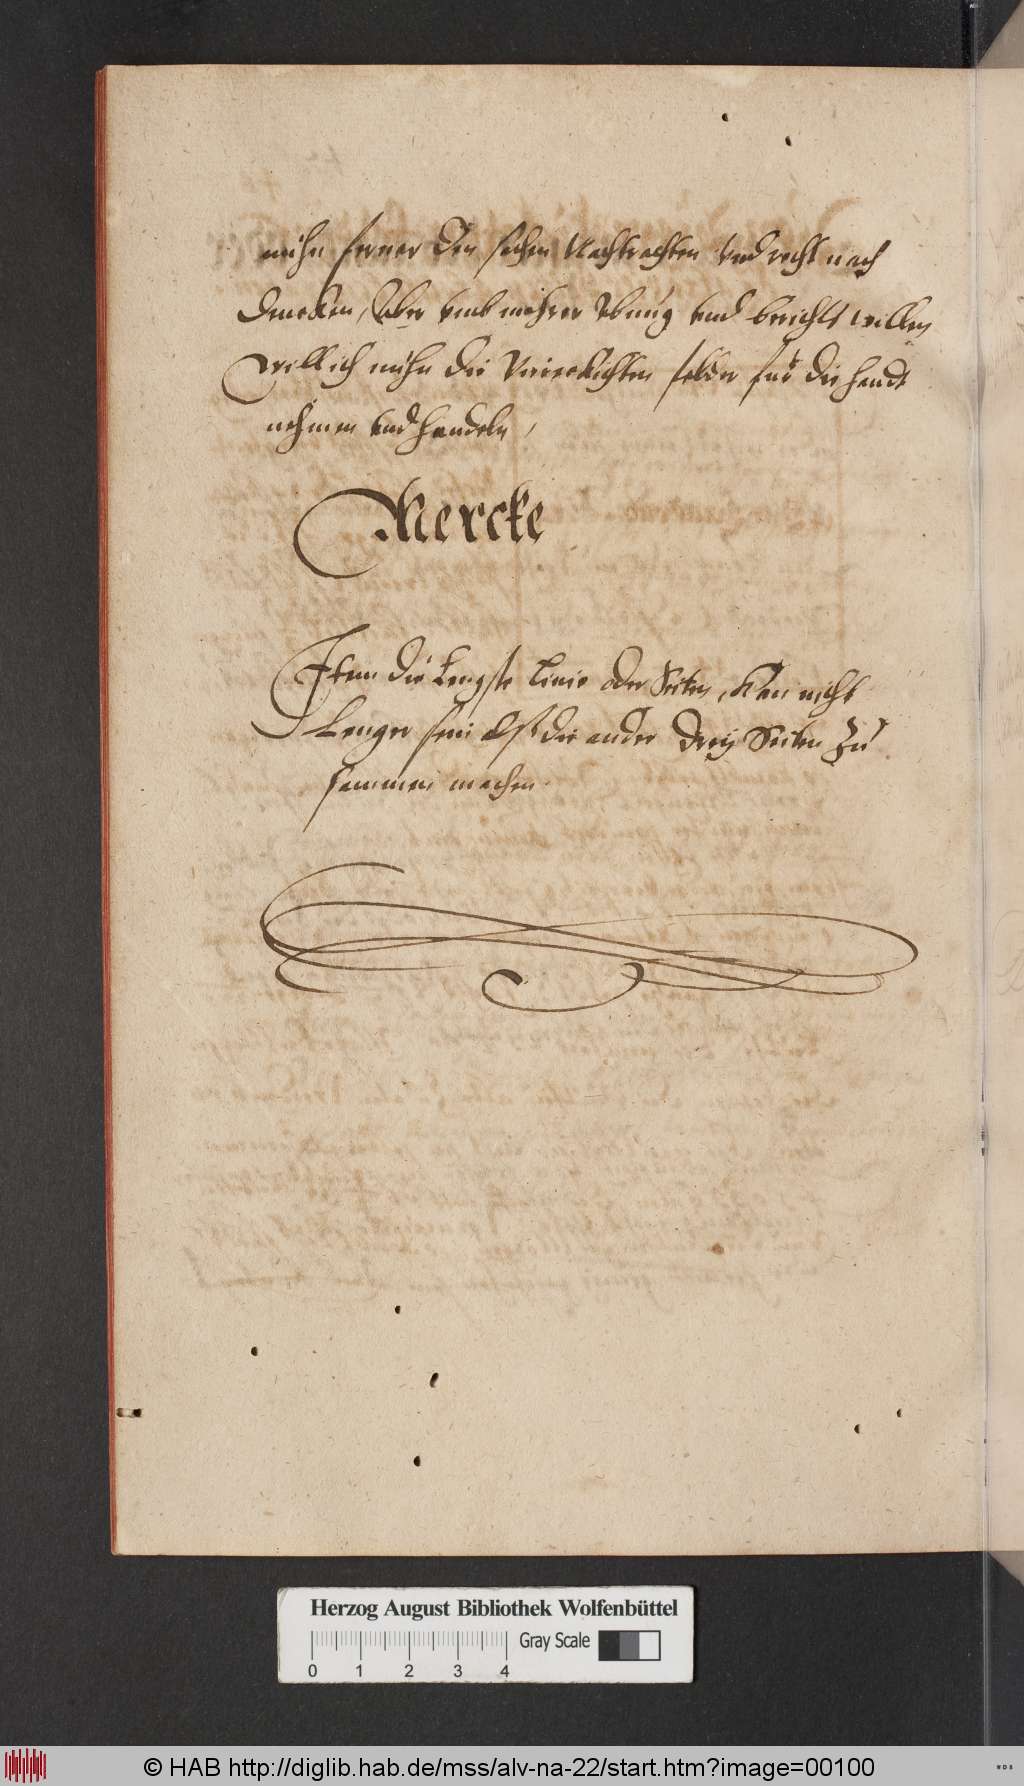 mihn ferner den sachen Nachtrachten vnd recht nach
dencken, Aber vmb mehrer übung vnd berichts willen
will ich mihn die Viereckichten felder für die handt
nehmen vnd handeln,
Mercke
Item die Lengste Linie oder Seiten, Kan nicht
Lenger sein als die ander dreÿ Seiten zu
sammen machen.
Herzog August Bibliothek Wolfenbüttel
Gray Scale
0 1 2 3 4
© HAB http://diglib.hab.de/mss/alv-na-22/start.htm?image=00100